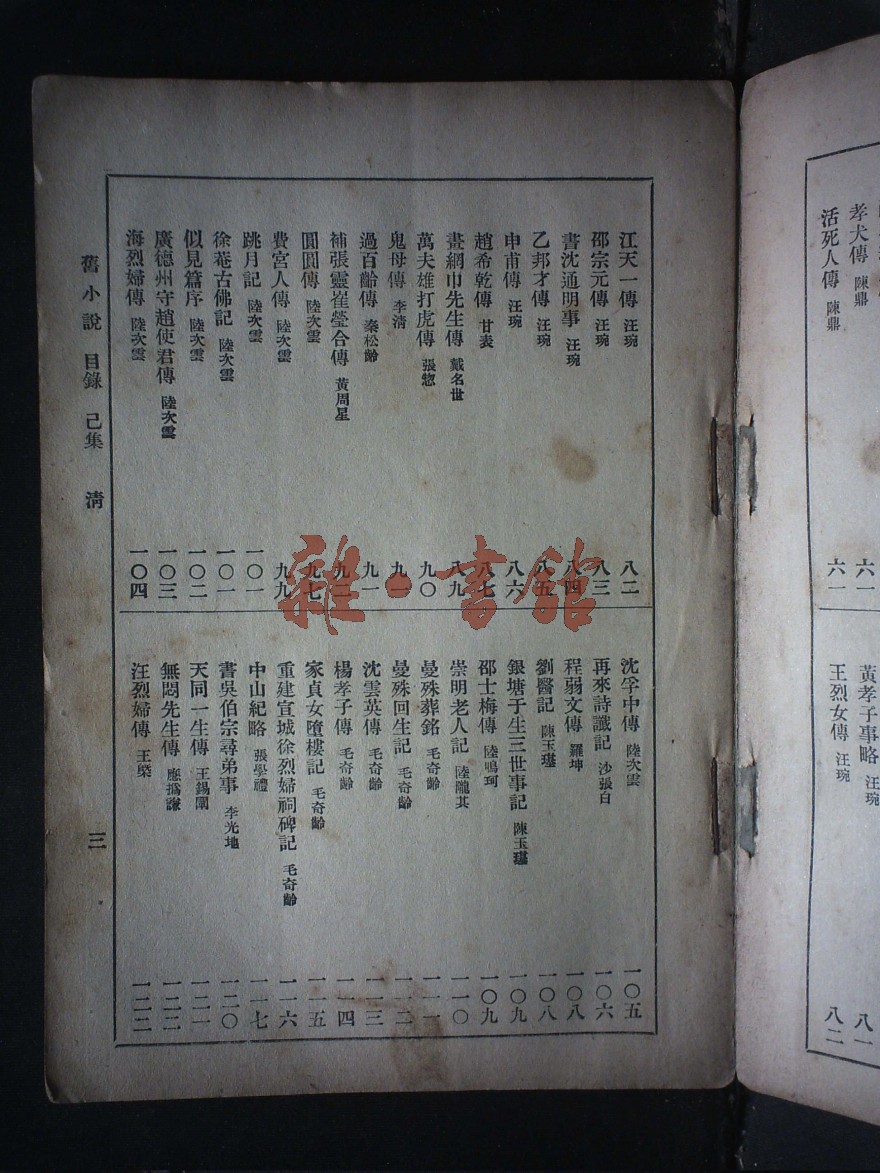 孝犬傳 陳鼎 六一
活死人傳 陳鼎 六一
黃孝子事略 汪琬 八一
王烈女傳 汪琬 八二
江天一傳 汪琬 八二
邵宗元傳 汪琬 八三
書沈通明事 汪琬 八四
乙邦才傳 汪琬 八五
申甫傳 汪琬 八六
趙希乾傳 甘表 八七
畫網巾先生傳 戴名世 八九
萬夫雄打虎傳 張惣 九〇
鬼母傳 李清 九一
過百齡傳 秦松齡 九一
補張靈崔瑩合傳 黃周星 九三
圓圓傳 陸次雲 九七
費宮人傳 陸次雲 九九
跳月記 陸次雲 一〇一
徐菴古佛記 陸次雲 一〇一
似見篇序 陸次雲 一〇二
廣德州守趙使君傳 陸次雲 一〇三
海烈婦傳 陸次雲 一〇四
沈孚中傳 陸次雲 一〇五
再來詩讖記 沙張白 一〇六
程弱文傳 羅坤 一〇八
劉醫記 陳玉璂 一〇八
銀塘于生三世事記 陳玉璂 一〇九
邵士梅傳 陸鳴珂 一〇九
崇明老人記 陸隴其 一一〇
曼殊葬銘 毛奇齡 一一一
曼殊回生記 毛奇齡 一一二
沈雲英傳 毛奇齡 一一三
楊孝子傳 毛奇齡 一一四
家貞女墮樓記 毛奇齡 一一五
重建宣城徐烈婦祠碑記 毛奇齡 一一六
中山紀略 張學禮 一一七
書吳伯宗尋弟事 李光地 一二〇
天同一生傳 王錫闡 一二一
無悶先生傳 應撝謙 一二二
汪烈婦傳 王槩 一二二
舊小說 目錄 己集 清 三
雜·書館